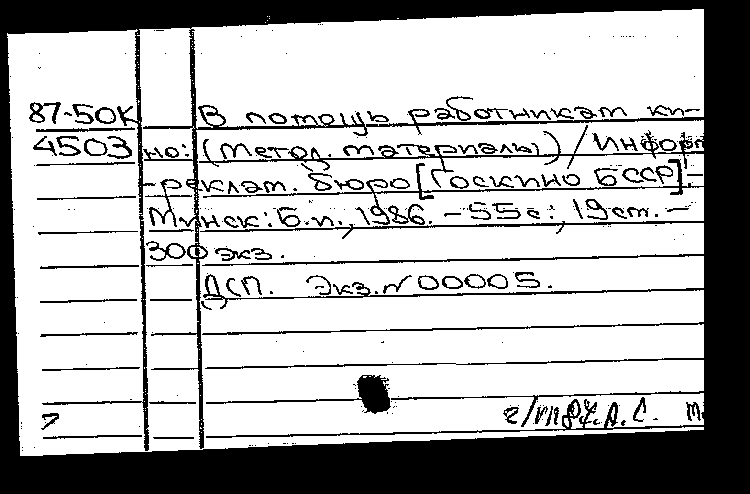 87-50К В помощь работникам ки-
4503 но: (Метод. материалы) / Информ
-реклам. бюро [Госкино БССР].-
Минск: Б.и., 1986. - 55 с.; 19 см. -
300 экз.
ДСП. Экз. № 00005.